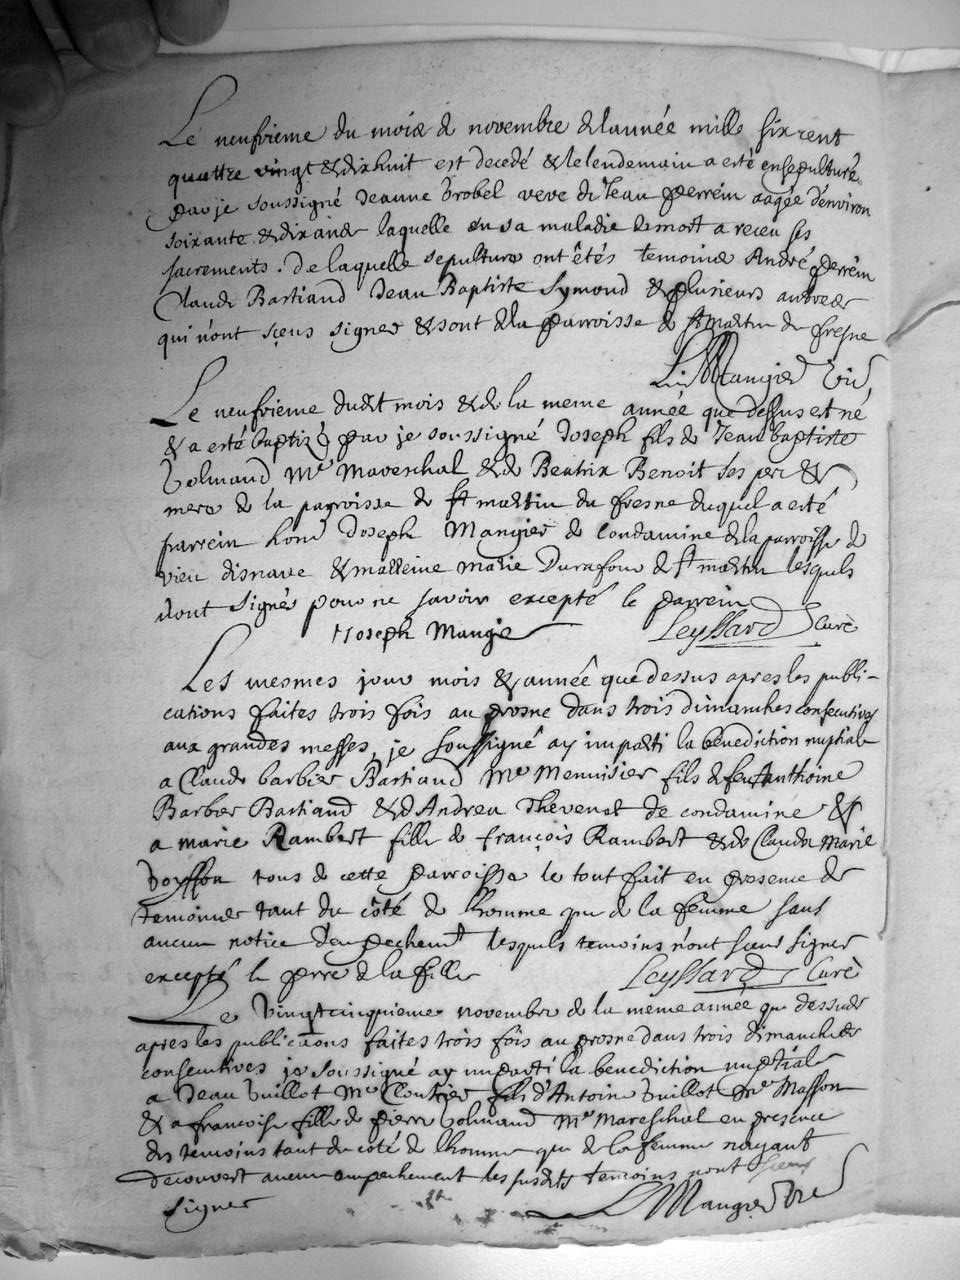 Le neufvieme du mois de novembre de lannée mille six cent
quattre vingt & dix huit est decedé & le lendemain a esté ensepulturé
par je soussigné Jeanne Brobel veve de Jean Perrein aagée d'environ
soixante & dix ans laquelle en sa maladie de mort a receu ses
sacrements. de laquelle sepulture ont êtés temoins André Perrein
Claude Bastiand Jean Baptiste Symond & plusieurs autres
qui n'ont sçeus signer & sont de la parroisse de st Martin du fresne
Mangier vic
Le neufvieme dudit mois & de la meme année que dessus est né
& a esté baptizé par je soussigné Joseph fils de Jean baptiste
Volmand Me Mareschal & de Beatrix Benoit ses pere &
mere de la parroisse de st martin du fresne duquel a esté
parrein hon Joseph Mangier de Condamine de la parroisse de
vieu disnave & marreine marie Durafour de st martin lesquels
n'ont signés pour ne savoir excepté le parrein
Joseph Mangie Leyssard Curé
Les mesmes jour mois & année que dessus apres les publi-
cations faites trois fois au prosne dans trois dimanches consecutives
aux grandes messes, je soussigné ay imparti la benediction nuptiale
a Claude barbier Bastiand Me Menuisier fils de feu Anthoine
Barbier Bastiand & d'Andrea Thevenet de condamine &
a marie Rambert fille de françois Rambert & de Claude Marie
boysson tous de cette parroisse le tout fait en presence de
temoins tant du côté de lhomme que de la femme sans
aucun notice d'enpechemt lesquels temoins n'ont sceus signer
excepté le pere de la fille Leyssard Curé
Le vingtcinquieme novembre de la meme année que dessus
apres les publications faites trois fois au prosne dans trois dimanches
consecutives je soussigné ay imparti la benediction nuptiale
a Jean Vuillot Me Cloutier fils d'Antoine Vuillot Me Masson
& a francoise fille de pierre Volmand Me Mareschal en presence
des temoins tant du côté de lhomme que de la femme nayant
decouvert aucun empechement les susdits temoins nont sceus
signer Mangier vic